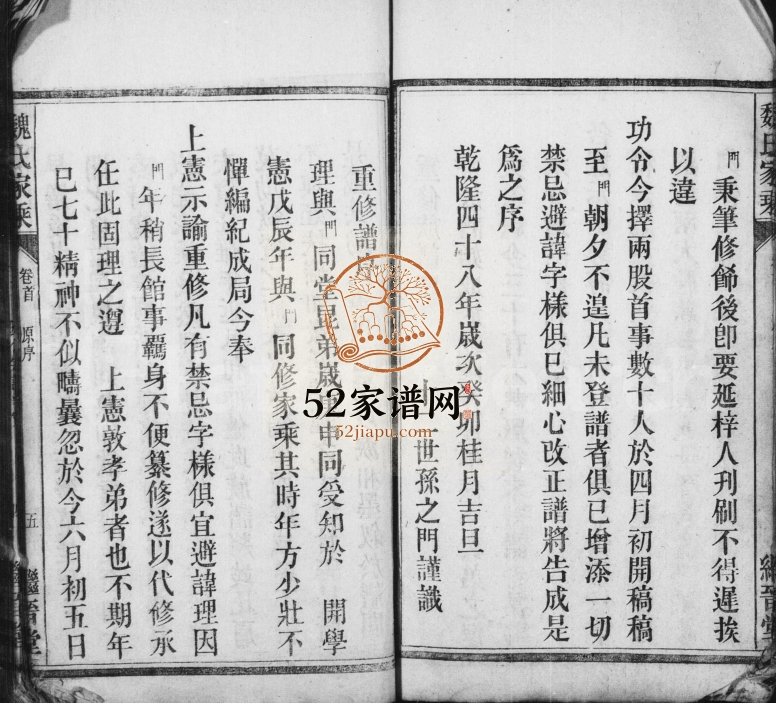 門秉筆修餙後卽要延梓人刋刷不得遲挨
以違
功令今擇兩股首事數十人於四月初開稿稿
至門朝夕不遑凡未登譜者俱巳增添一切
禁忌避諱字樣俱巳細心改正譜將告成是
爲之序
乾隆四十八年嵗次癸卯桂月吉旦
世孫之門謹識
重修譜
理與門同堂昆弟嵗申同受知於 開學
憲戊辰年與門同修家乘其時年方少壯不
憚編紀成局今奉
上憲示諭重修凡有禁忌字樣俱宜避諱理因
門年稍長館事羈身不便纂修遂以代修承
任此固理之遵 上憲敦孝弟者也不期年
巳七十精神不似疇曩忽於今六月初五日
魏氏家乘
卷首 原序
五
繼晉堂
52家谱网
52jiapu.com